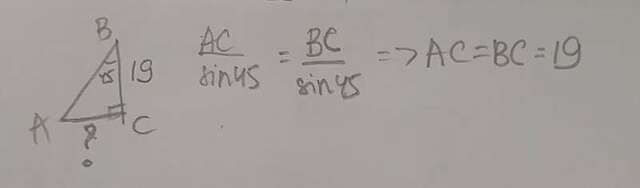 B
45 19
A C
?
AC/sin45 = BC/sin45 => AC=BC=19